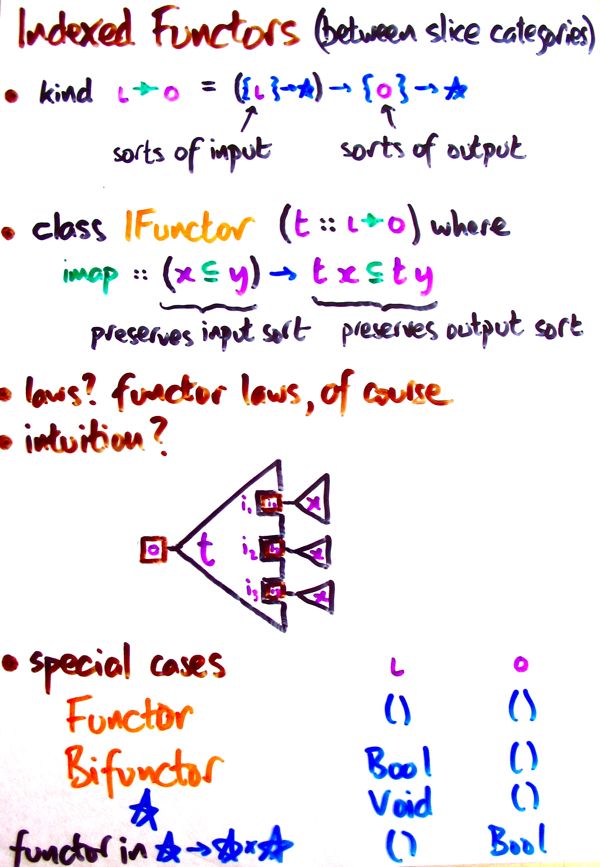 Indexed Functors (between slice categories)
• kind ι ⇸ o = ({ι}→☆) → {o}→☆
sorts of input sorts of output
• class IFunctor (t :: ι ⇸ o) where
imap :: (x ⊆ y) → t x ⊆ t y
preserves input sort preserves output sort
• laws? functor laws, of course
• intuition?
i₁ x
o t i₂ x
i₃ x
• special cases ι o
Functor () ()
Bifunctor Bool ()
☆ Void ()
functor in ☆→☆×☆ () Bool